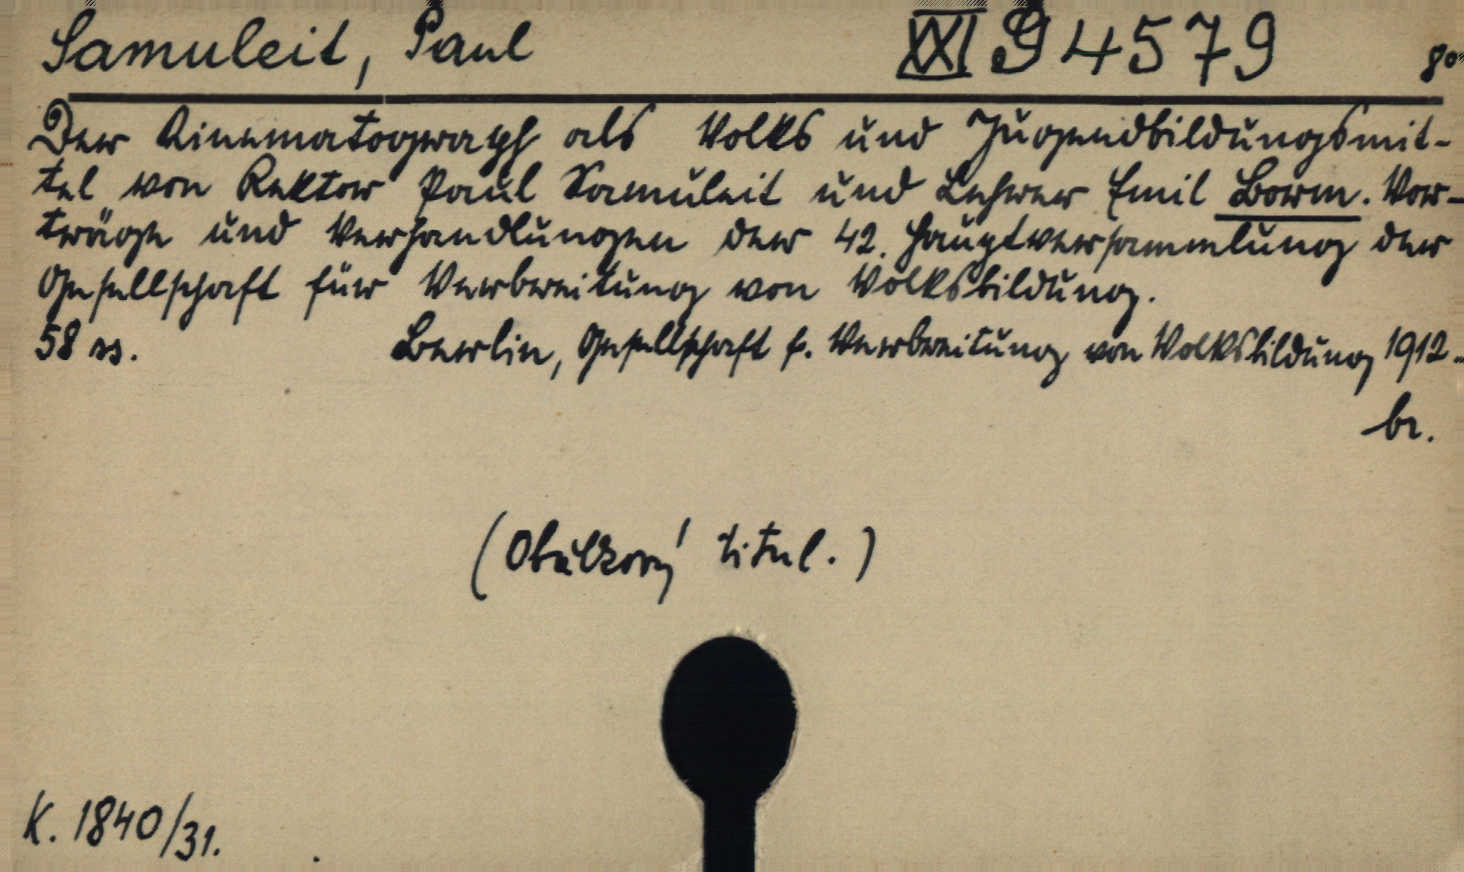 Samuleit, Paul XXI J 4579 8°
Der Kinematograph als Volks und Jugendbildungsmit-
tel von Rektor Paul Samuleit und Lehrer Emil Borm. Vor-
träge und Verhandlungen der 42. Hauptversammlung der
Gesellschaft für Verbreitung von Volksbildung.
58 ss. Berlin, Gesellschaft f. Verbreitung von Volksbildung 1912.
br.
(Obálkový titul.)
K. 1840/31.